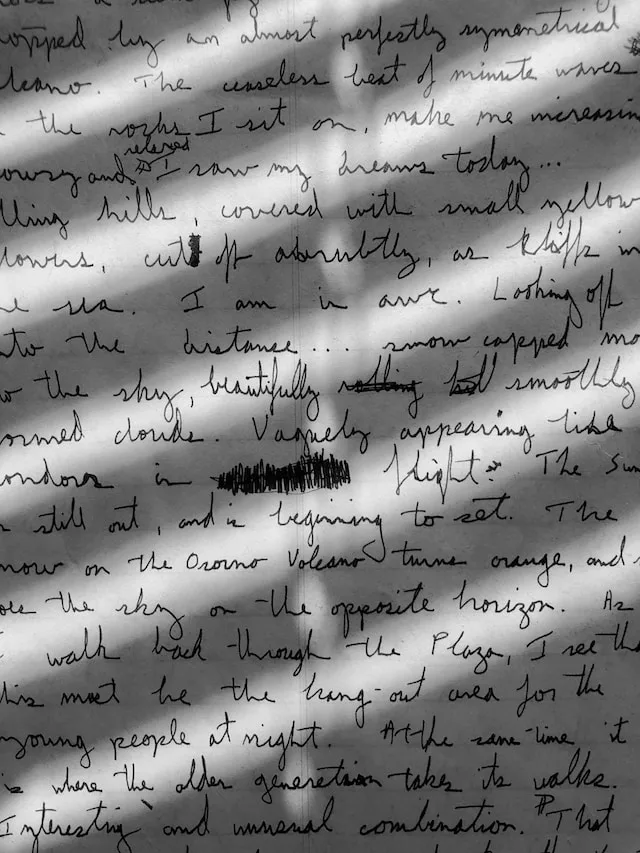 topped by an almost perfectly symmetrical
lcano. The ceaseless beat of minute waves
the rocks I sit on, make me increasin
relaxed
owsy and I saw my dreams today...
lling hills, covered with small yellow
lowers, cut off abrubtly, as kliffs in
he sea. I am in awe. Looking off
nto the distance... snow capped mo
o the sky, beautifully smoothly
ormed clouds. Vaguely appearing like
ondors in flight. The Sun
s still out, and is beginning to set. The
now on the Osorno Volcano turns orange, and
oes the sky on the opposite horizon. As
I walk back through the Plaza, I see tha
his must be the hang-out area for the
young people at night. At the same time it
is where the older generation takes its walks.
Interesting and unusual combination. That